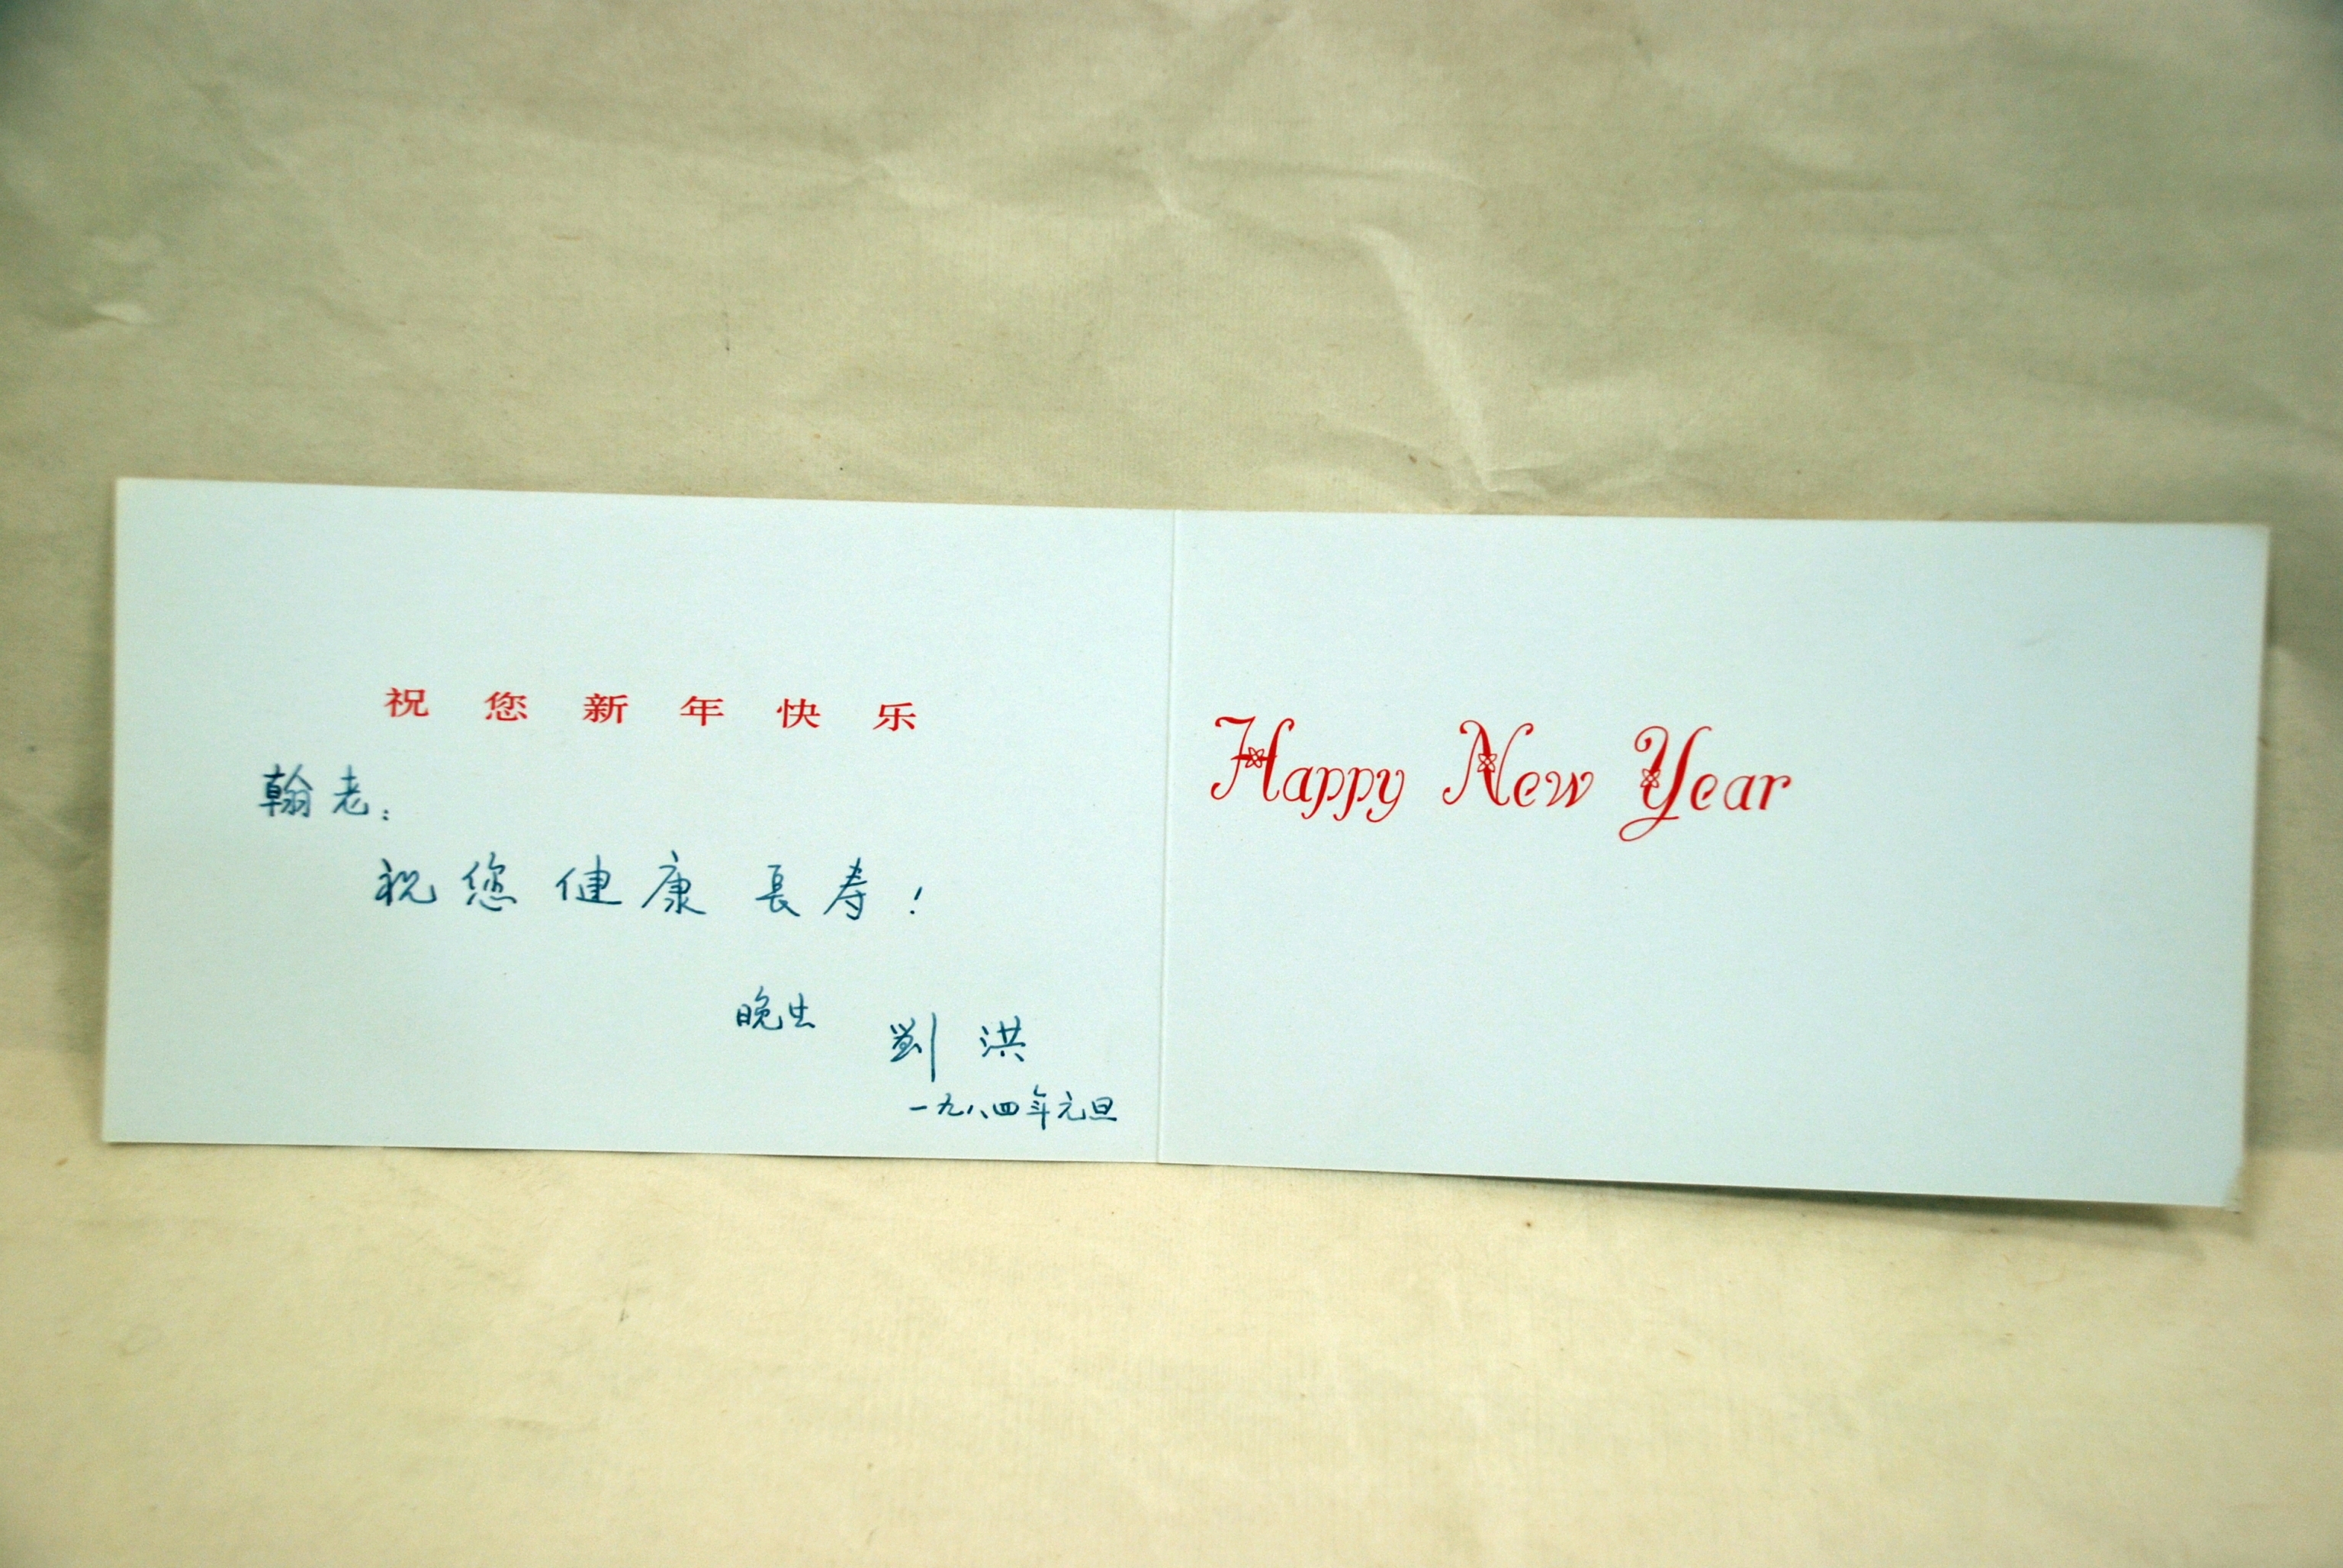 祝您新年快乐
翰老：
祝您健康長寿！
晚生 劉洪
一九八四年元旦
Happy New Year